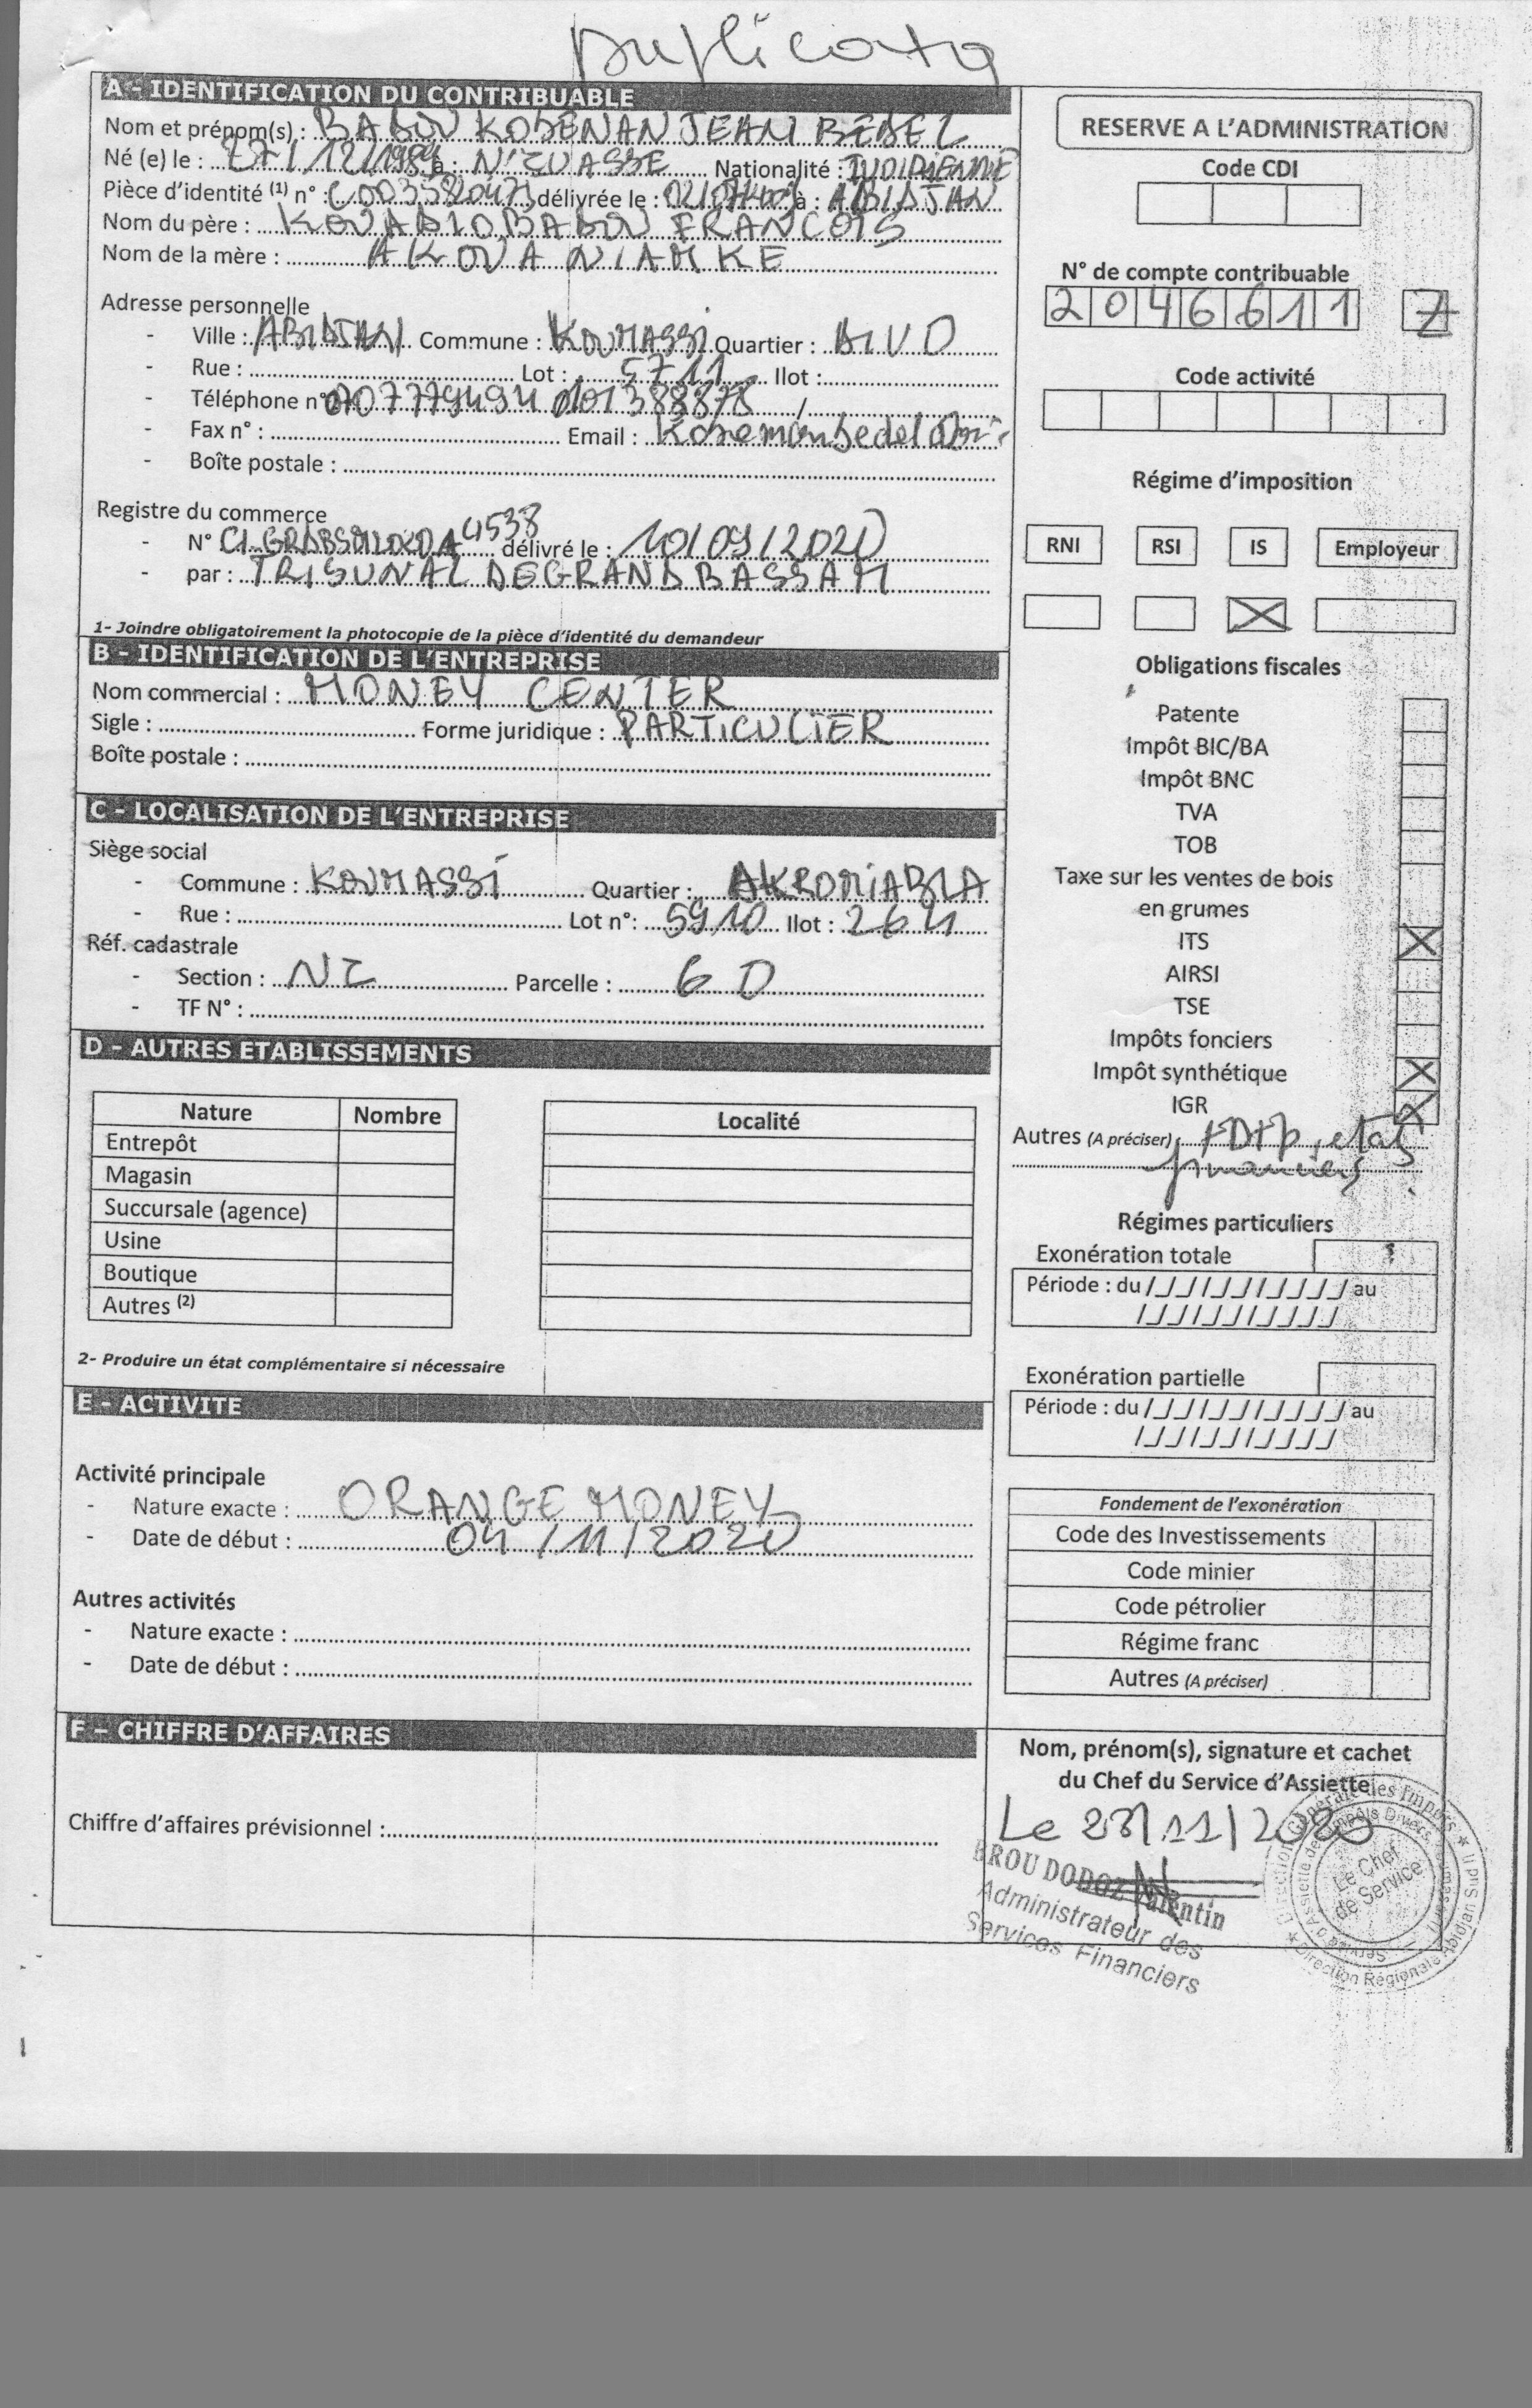 Duplicata
A - IDENTIFICATION DU CONTRIBUABLE
Nom et prénom(s) : BABOU KOBENAN JEAN BEDEL
Né (e) le : 27/12/1989 à : N'ZUASSE Nationalité : IVOIRIENNE
Pièce d'identité (1) n° : C003580473 délivrée le : à : ABIDJAN
Nom du père : KOUADIO BABOU FRANCOIS
Nom de la mère : AKOUA NIAMKE
Adresse personnelle
- Ville : ABIDJAN Commune : KOUMASSI Quartier : DIVO
- Rue : Lot : 5711 Ilot :
- Téléphone n° 0707779494 0101388878 /
- Fax n° : Email :
- Boîte postale :
Registre du commerce
- N° 4538 délivré le : 10/09/2020
- par : TRIBUNAL DE GRAND BASSAM
1- Joindre obligatoirement la photocopie de la pièce d'identité du demandeur
B - IDENTIFICATION DE L'ENTREPRISE
Nom commercial : MONEY CENTER
Sigle : Forme juridique : PARTICULIER
Boîte postale :
C - LOCALISATION DE L'ENTREPRISE
Siège social
- Commune : KOUMASSI Quartier : AKROMIABLA
- Rue : Lot n°: 5910 Ilot : 264
Réf. cadastrale
- Section : NZ Parcelle : 60
- TF N° :
D - AUTRES ETABLISSEMENTS
Nature Nombre Localité
Entrepôt
Magasin
Succursale (agence)
Usine
Boutique
Autres (2)
2- Produire un état complémentaire si nécessaire
E - ACTIVITE
Activité principale
- Nature exacte : ORANGE MONEY
- Date de début : 04/11/2020
Autres activités
- Nature exacte :
- Date de début :
F – CHIFFRE D'AFFAIRES
Chiffre d'affaires prévisionnel :
RESERVE A L'ADMINISTRATION
Code CDI
N° de compte contribuable
2046611 Z
Code activité
Régime d'imposition
RNI RSI IS Employeur
Obligations fiscales
Patente
Impôt BIC/BA
Impôt BNC
TVA
TOB
Taxe sur les ventes de bois
en grumes
ITS
AIRSI
TSE
Impôts fonciers
Impôt synthétique
IGR
Autres (A préciser) FDFP, etats
financiers
Régimes particuliers
Exonération totale
Période : du /_/_/_/_/_/_/_/_/_/_/ au
/_/_/_/_/_/_/_/_/_/_/
Exonération partielle
Période : du /_/_/_/_/_/_/_/_/_/_/ au
/_/_/_/_/_/_/_/_/_/_/
Fondement de l'exonération
Code des Investissements
Code minier
Code pétrolier
Régime franc
Autres (A préciser)
Nom, prénom(s), signature et cachet
du Chef du Service d'Assiette
Le 23/11/2020
BROU DODOZ Valentin
Administrateur des
Services Financiers
Direction Générale des Impôts
Direction Régionale Abidjan Sud II
Service d'Assiette des Impôts Divers
Le Chef
de Service